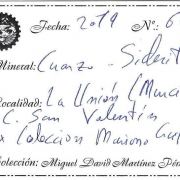 Fecha: 2019 Nº: 6
Mineral: Cuarzo - Siderit
Localidad: La Unión (Murc
C. San Valentín
x Colección Mariano
Colección: Miguel David Martínez Pér